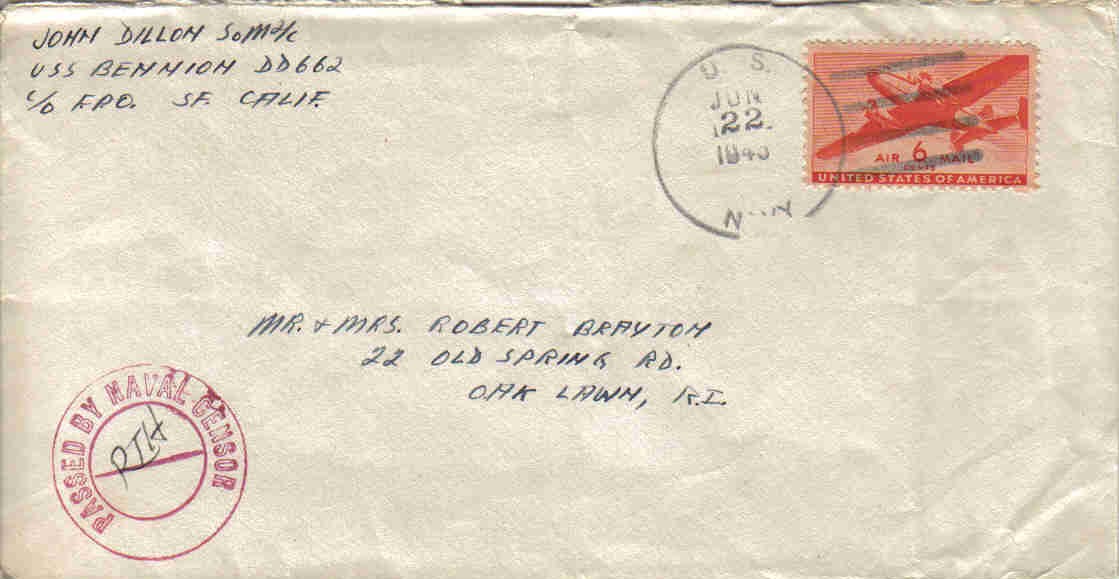 JOHN DILLON SoM2/c
USS BENNION DD662
c/o FPO. SF. CALIF.
U. S.
JUN
22
NAVY
AIR 6 MAIL
CENTS
UNITED STATES OF AMERICA
MR. + MRS. ROBERT BRAYTON
22 OLD SPRING RD.
OAK LAWN, R.I.
PASSED BY NAVAL CENSOR